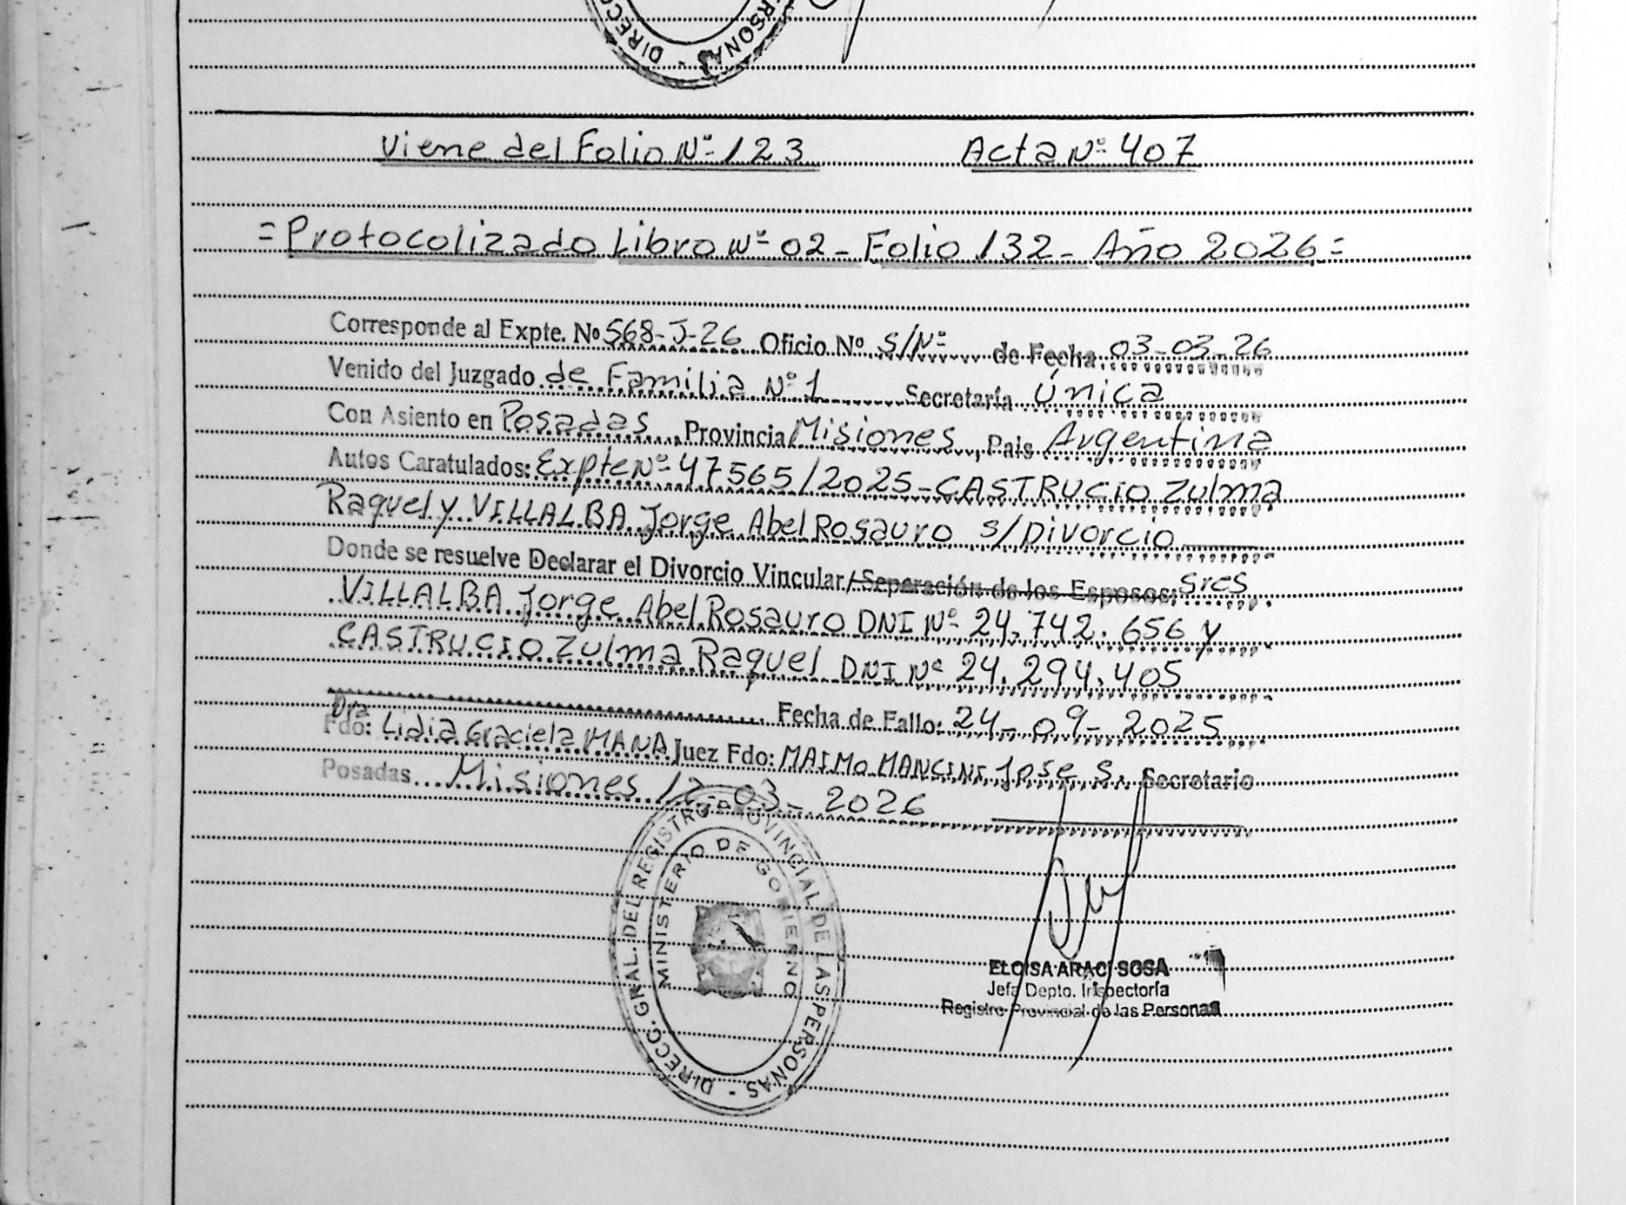 DIRECC PERSONAS -
Viene del Folio Nº 123 Acta Nº 407
= Protocolizado Libro Nº 02 - Folio 132 - Año 2026 =
Corresponde al Expte. Nº 568-J-26 Oficio Nº S/Nº de Fecha 03-03-26
Venido del Juzgado de Familia Nº 1 Secretaría Única
Con Asiento en Posadas, Provincia Misiones, Pais Argentina
Autos Caratulados: Expte Nº 47565/2025 - CASTRUCIO Zulma
Raquel y VILLALBA Jorge Abel Rosauro s/Divorcio
Donde se resuelve Declarar el Divorcio Vincular/Separación de los Esposos; Sres
VILLALBA Jorge Abel Rosauro DNI Nº 24.742.656 y
CASTRUCIO Zulma Raquel DNI Nº 24.294.405
Fecha de Fallo: 24-09-2025
Dra
Fdo: Lidia Graciela MANA Juez Fdo: MAIMO MANCINI Jose S. Secretario
Posadas Misiones 12-03-2026
DIRECC. GRAL. DEL REGISTRO PROVINCIAL DE LAS PERSONAS -
MINISTERIO DE GOBIERNO
ELOISA ARACI SOSA
Jefa Depto. Inspectoría
Registro Provincial de las Personas